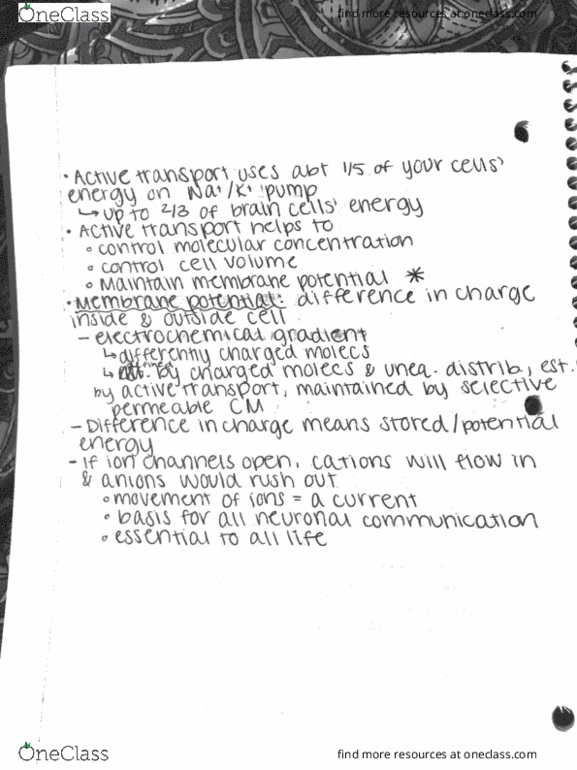 OneClass
find more resources at oneclass.com
• Active transport uses abt 1/5 of your cells'
energy on Na+/K+ pump
↳ up to 2/3 of brain cells' energy
• Active transport helps to
◦ control molecular concentration
◦ control cell volume
◦ Maintain membrane potential *
• Membrane potential: difference in charge
inside & outside cell
– electrochemical gradient
↳ differently charged molecs
↳ by charged molecs & uneq. distrib., est.
by active transport, maintained by selective
permeable CM
– Difference in charge means stored/potential
energy
– If ion channels open, cations will flow in
& anions would rush out
◦ movement of ions = a current
◦ basis for all neuronal communication
◦ essential to all life
OneClass
find more resources at oneclass.com